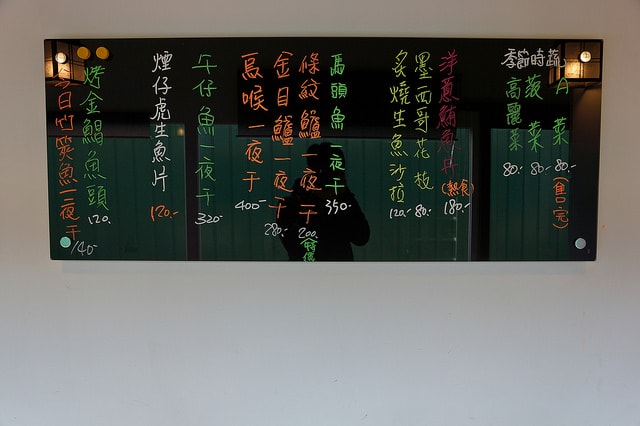 季節時蔬
A菜 80.- (售完)
菠菜 80.-
高麗菜 80.-
洋蔥鮪魚片 (熟食) 180.-
墨西哥花枝 80.-
炙燒生魚沙拉 120.-
馬頭魚一夜干 350.-
條紋鱸一夜干 200.- 特價
金目鱸一夜干 280.-
烏喉一夜干 400.-
午仔魚一夜干 320.-
煙仔虎生魚片 120.-
烤金鯧魚頭 120.-
今日竹筴魚一夜干 140.-